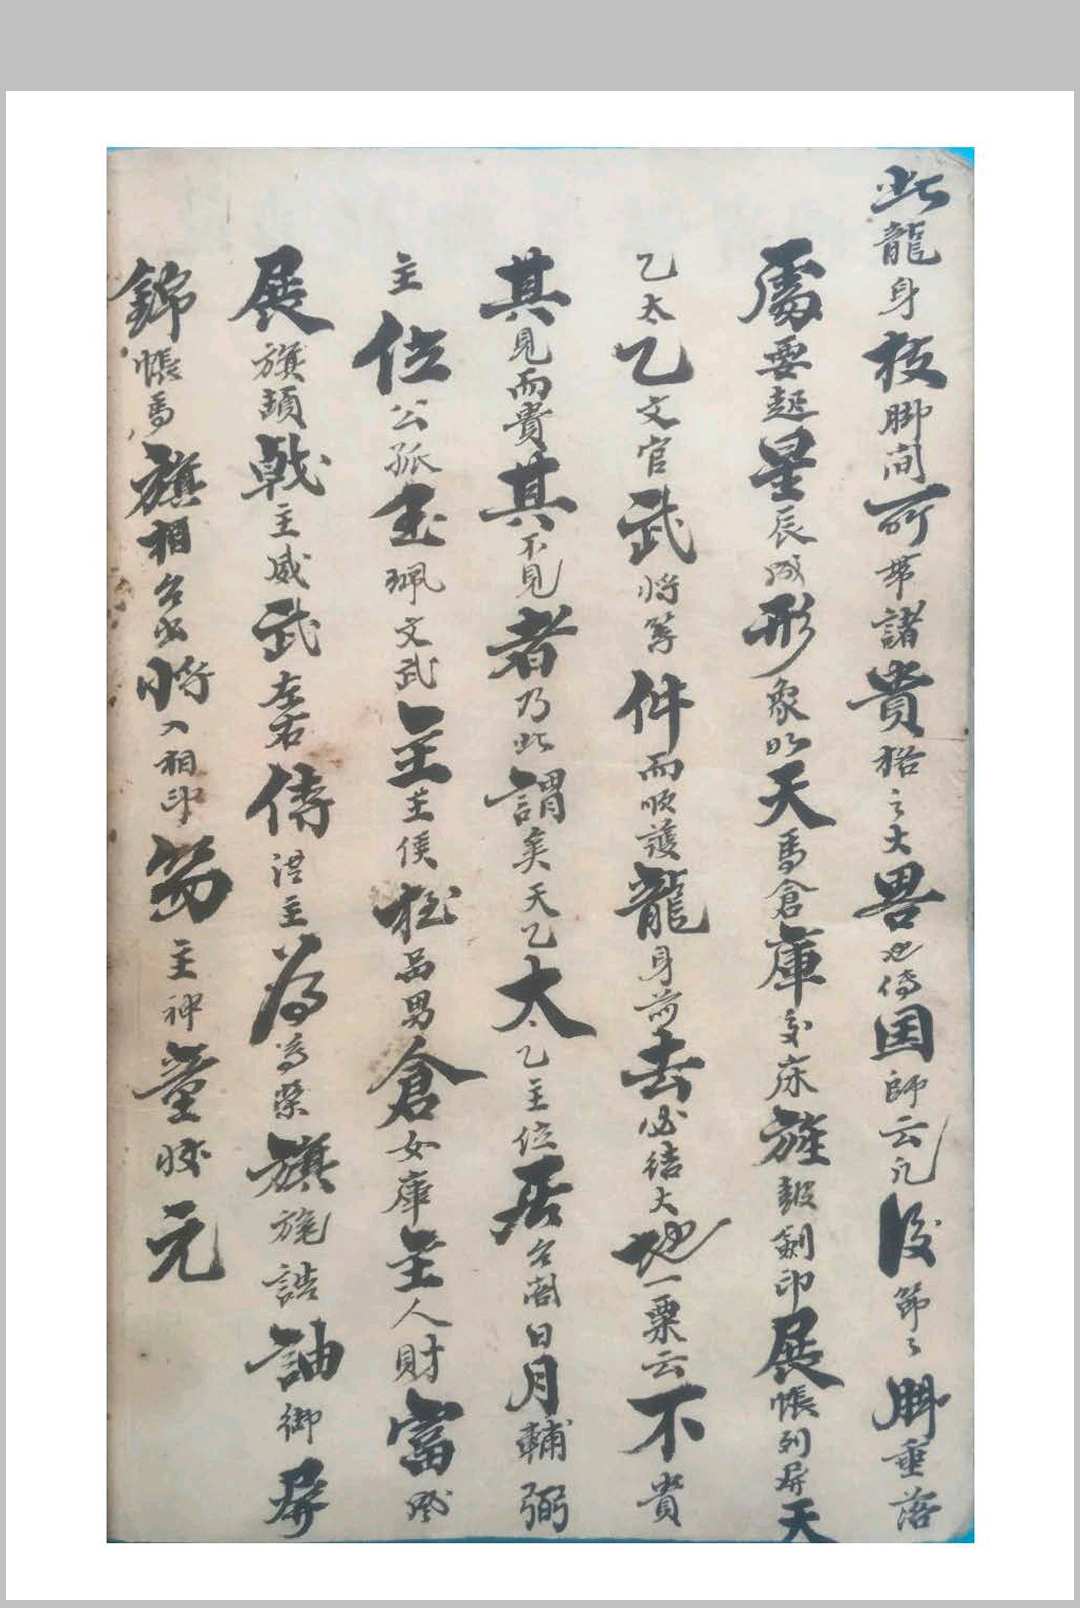 此龍身枝脚間所帶諸貴格之大畧也傳国師云凡後節々脚垂落
處要起星辰成形象如天馬倉庫交床旌報劍印展帳列屏天
乙太乙文官武將等件而順護龍身前去必結大地一粟云不貴
其見而貴其不見者乃此謂矣天乙太乙主位居台閣日月輔弼
主位公孤玉珮文武主王侯松品男倉女庫主人財富盛
展旗頓戟主威武左右侍 主為 榮旗旄誥 御屏
錦帳馬旗相台出將入相印笏主神童 元